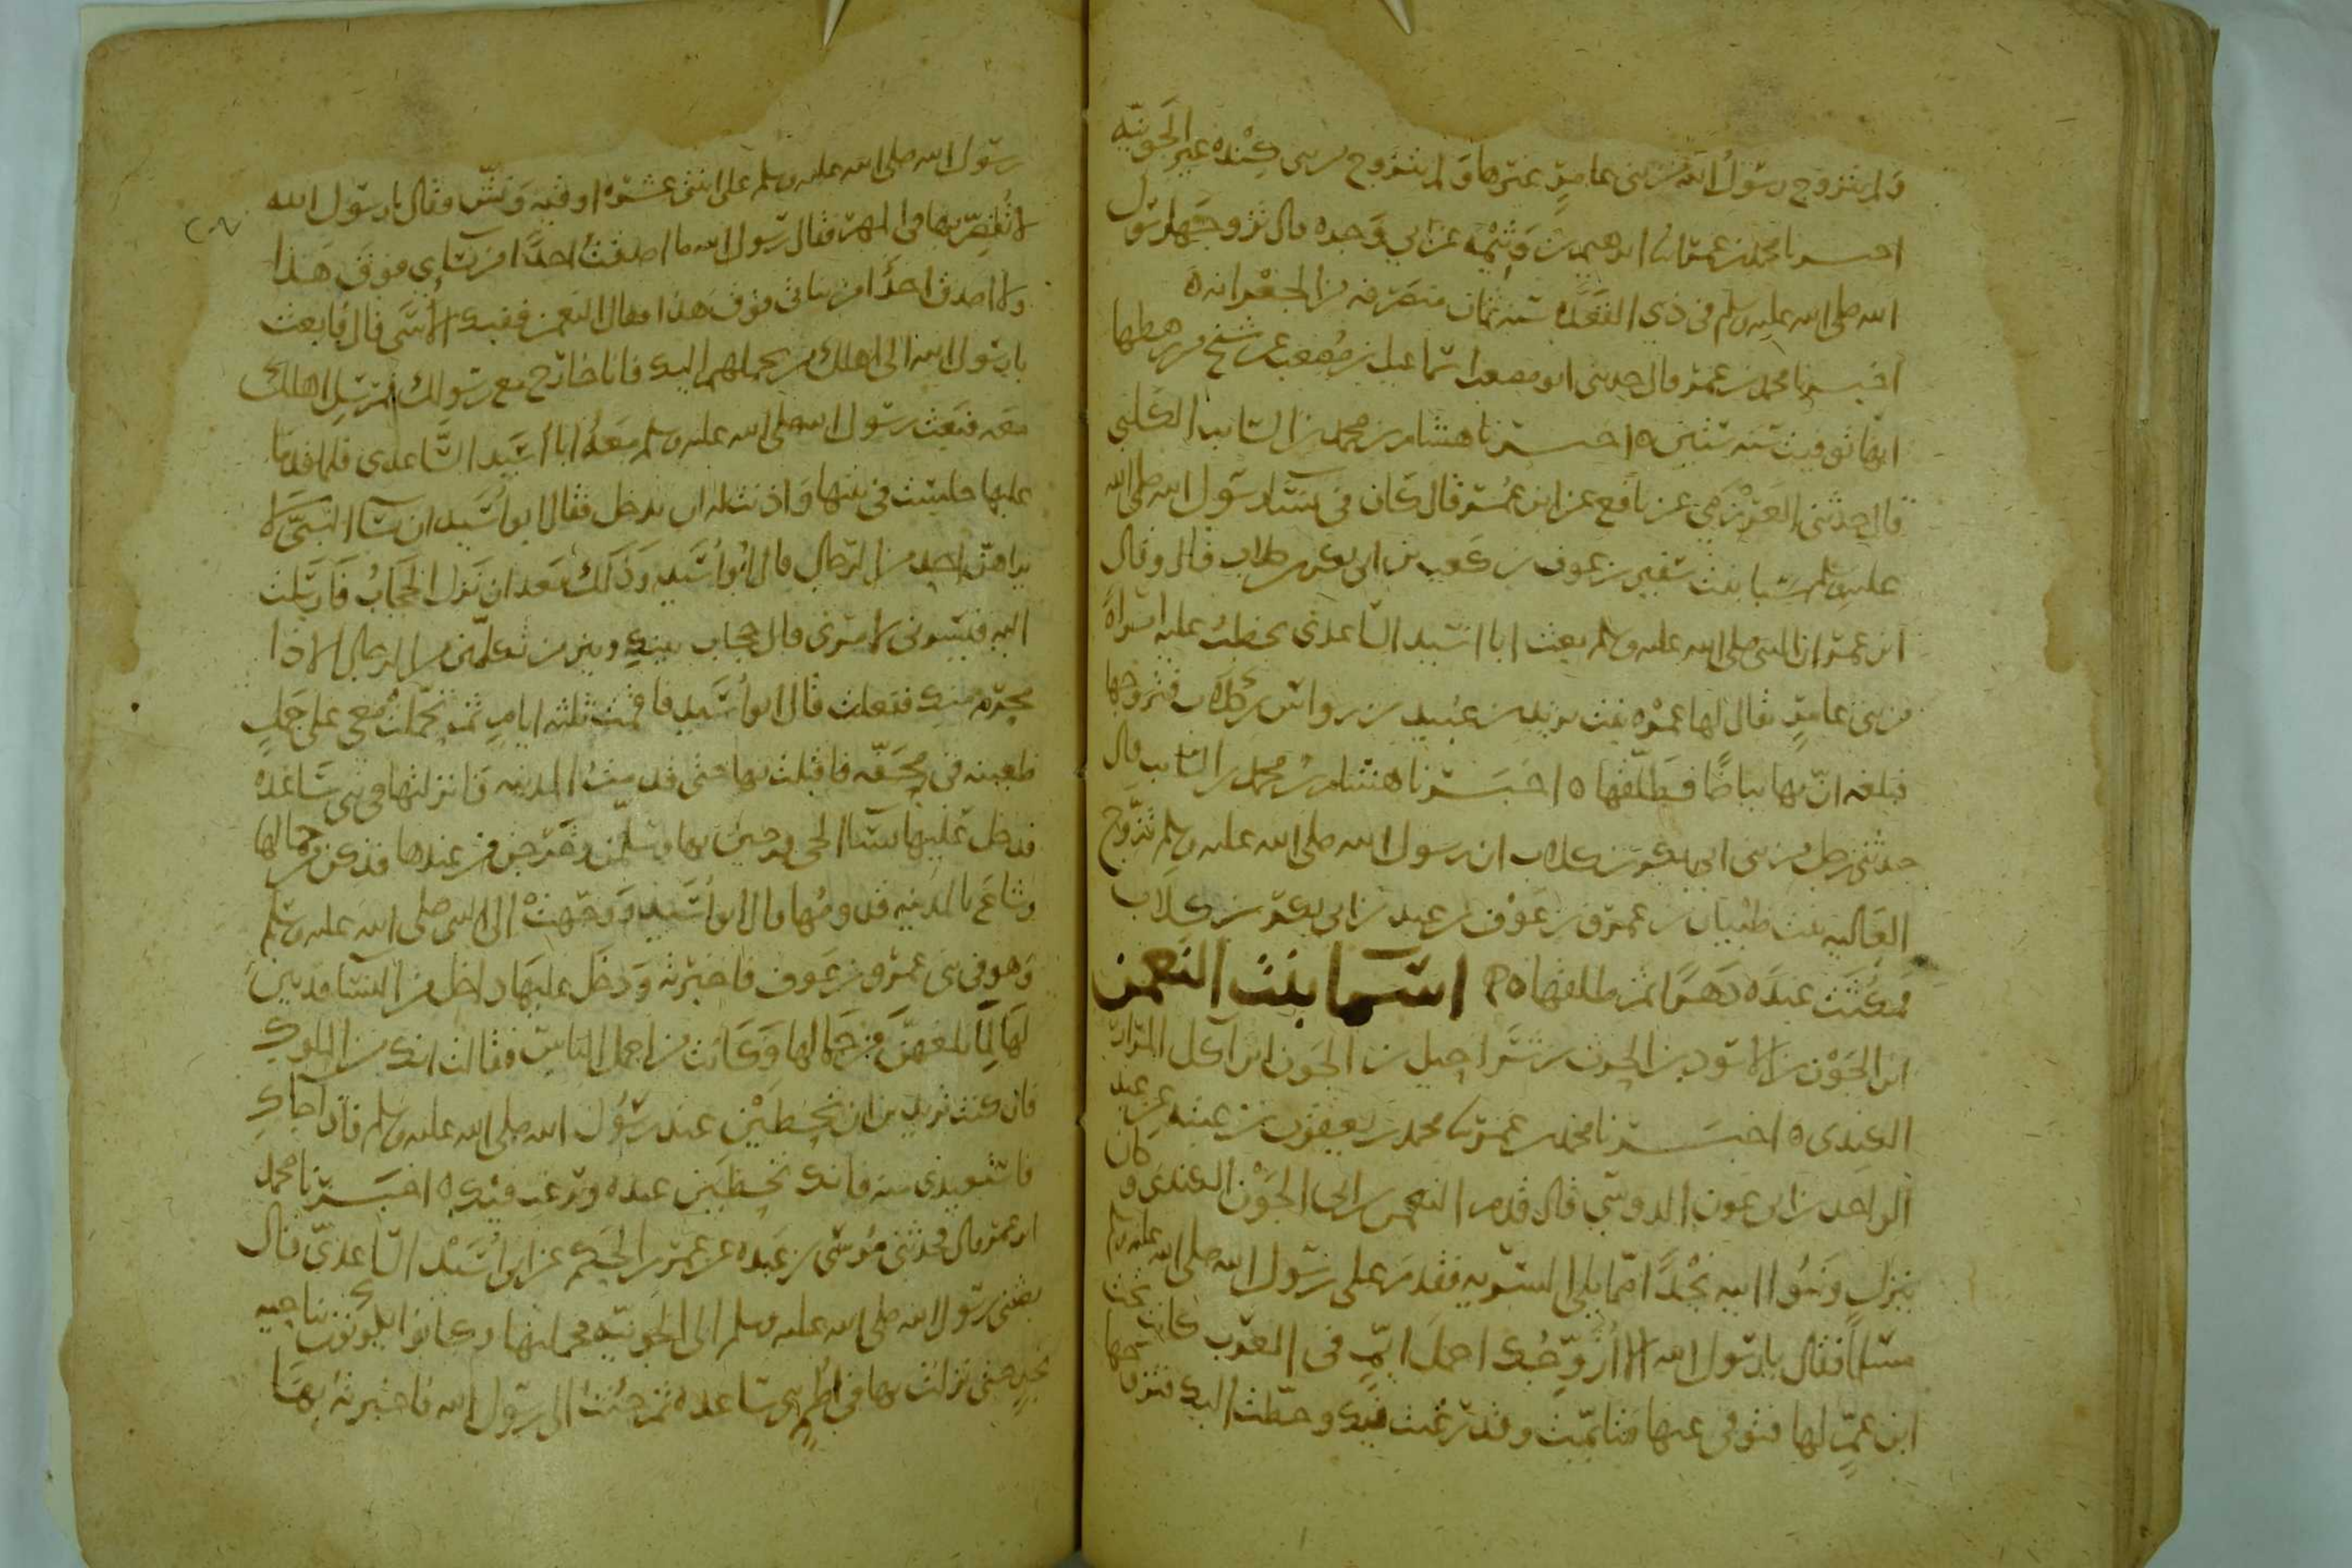 ولم يتزوج رسول الله من بني عامر غيرها ولم يتزوج من بني كنده غير الجونيه
اخبرنا محمد بن عمر نا ابرهيم بن وثيمه عن ابي وجده قال تزوجها رسول
الله صلى الله عليه وسلم في ذي القعده سنه ثمان منصرفه من الجعرانه ه
اخبرنا محمد بن عمر قال حدثني ابو مصعب اسماعيل بن مصعب عن شيخ من رهطها
انها توفيت سنه ستين ه اخبرنا هشام بن محمد بن السايب الكلبي
قال حدثني العرزمي عن نافع عن ابن عمر قال كان في نسا رسول الله صلى الله
عليه وسلم سبا بنت سفين بن عوف بن كعب بن ابي بكر بن كلاب قال وقال
ابن عمر ان النبي صلى الله عليه وسلم بعث ابا اسيد الساعدي يخطب عليه امراة
من بني عامر يقال لها عمره بنت يزيد بن عبيد بن رواس بن كلاب فتزوجها
فبلغه ان بها بياضا فطلقها ه اخبرنا هشام بن محمد بن السايب قال
حدثني رجل من بني ابي بكر بن كلاب ان رسول الله صلى الله عليه وسلم تزوج
العاليه بنت ظبيان بن عمرو بن عوف بن عبد بن ابي بكر بن كلاب
فمكثت عنده دهرا ثم طلقها ه اسما بنت النعمن
ابن الجون بن الاسود بن الحرث بن شراحيل بن الجون ابن آكل المرار
الكندي ه اخبرنا محمد بن عمر نا محمد بن يعقوب بن عتبه عن عبد
الواحد بن ابي عون الدوسي قال قدم النعمن بن ابي الجون الكندي وكان
ينزل وبنوا ابيه نجدا مما يلي الشربه فقدم على رسول الله صلى الله عليه وسلم
مسلما فقال يا رسول الله الا ازوجك اجمل ايم في العرب كانت تحت
ابن عم لها فتوفي عنها فتايمت وقد رغبت فيك وحطت اليك فتزوجها
رسول الله صلى الله عليه وسلم على اثنتي عشره اوقيه ونش فقال يا رسول الله
لا تقصر بها في المهر فقال رسول الله ما اصدقت احدا من نساي فوق هذا
ولا اصدق احدا من بناتي فوق هذا فقال النعمن ففيك الاسى قال فابعث
يا رسول الله الى اهلك من يحملهم اليك فانا خارج مع رسولك فمرسل اهلك
معه فبعث رسول الله صلى الله عليه وسلم معه ابا اسيد الساعدي فلما قدما
عليها جلست في بيتها واذنت له ان يدخل فقال ابو اسيد ان نسا النبي لا
يراهن احد من الرجال قال ابو اسيد وذلك بعد ان نزل الحجاب فارسلت
اليه فيسرني لامري قال حجاب بينك وبين من تكلمين من الرجال الا ذا
محرم منك ففعلت قال ابو اسيد فاقمت ثلثه ايام ثم تحملت معي على جمل
ظعينه في محفه فاقبلت بها حتى قدمت المدينه فانزلتها في بني ساعده
فدخل عليها نسا الحي فرحبن بها وسلمن وخرجن من عندها فذكرن من جمالها
وشاع بالمدينه قدومها قال ابو اسيد ووجهت الى النبي صلى الله عليه وسلم
وهو في بني عمرو بن عوف فاخبرته ودخل عليها داخل من النسا فدين
لها لما بلغهن من جمالها وكانت من اجمل الناس فقالت انك من الملوك
فان كنت تريدين ان تحظين عند رسول الله صلى الله عليه وسلم فاذا جاك
فاستعيذي منه فانك تحظين عنده ويرغب فيك ه اخبرنا محمد
ابن عمر قال فحدثني موسى بن عبيده عن عمر بن الحكم عن ابي اسيد الساعدي قال
بعثني رسول الله صلى الله عليه وسلم الى الجونيه فحملتها وكانوا يكونون بناحيه
نجد حتى نزلت بها في اطم بني ساعده ثم جئت الى رسول الله فاخبرته بها